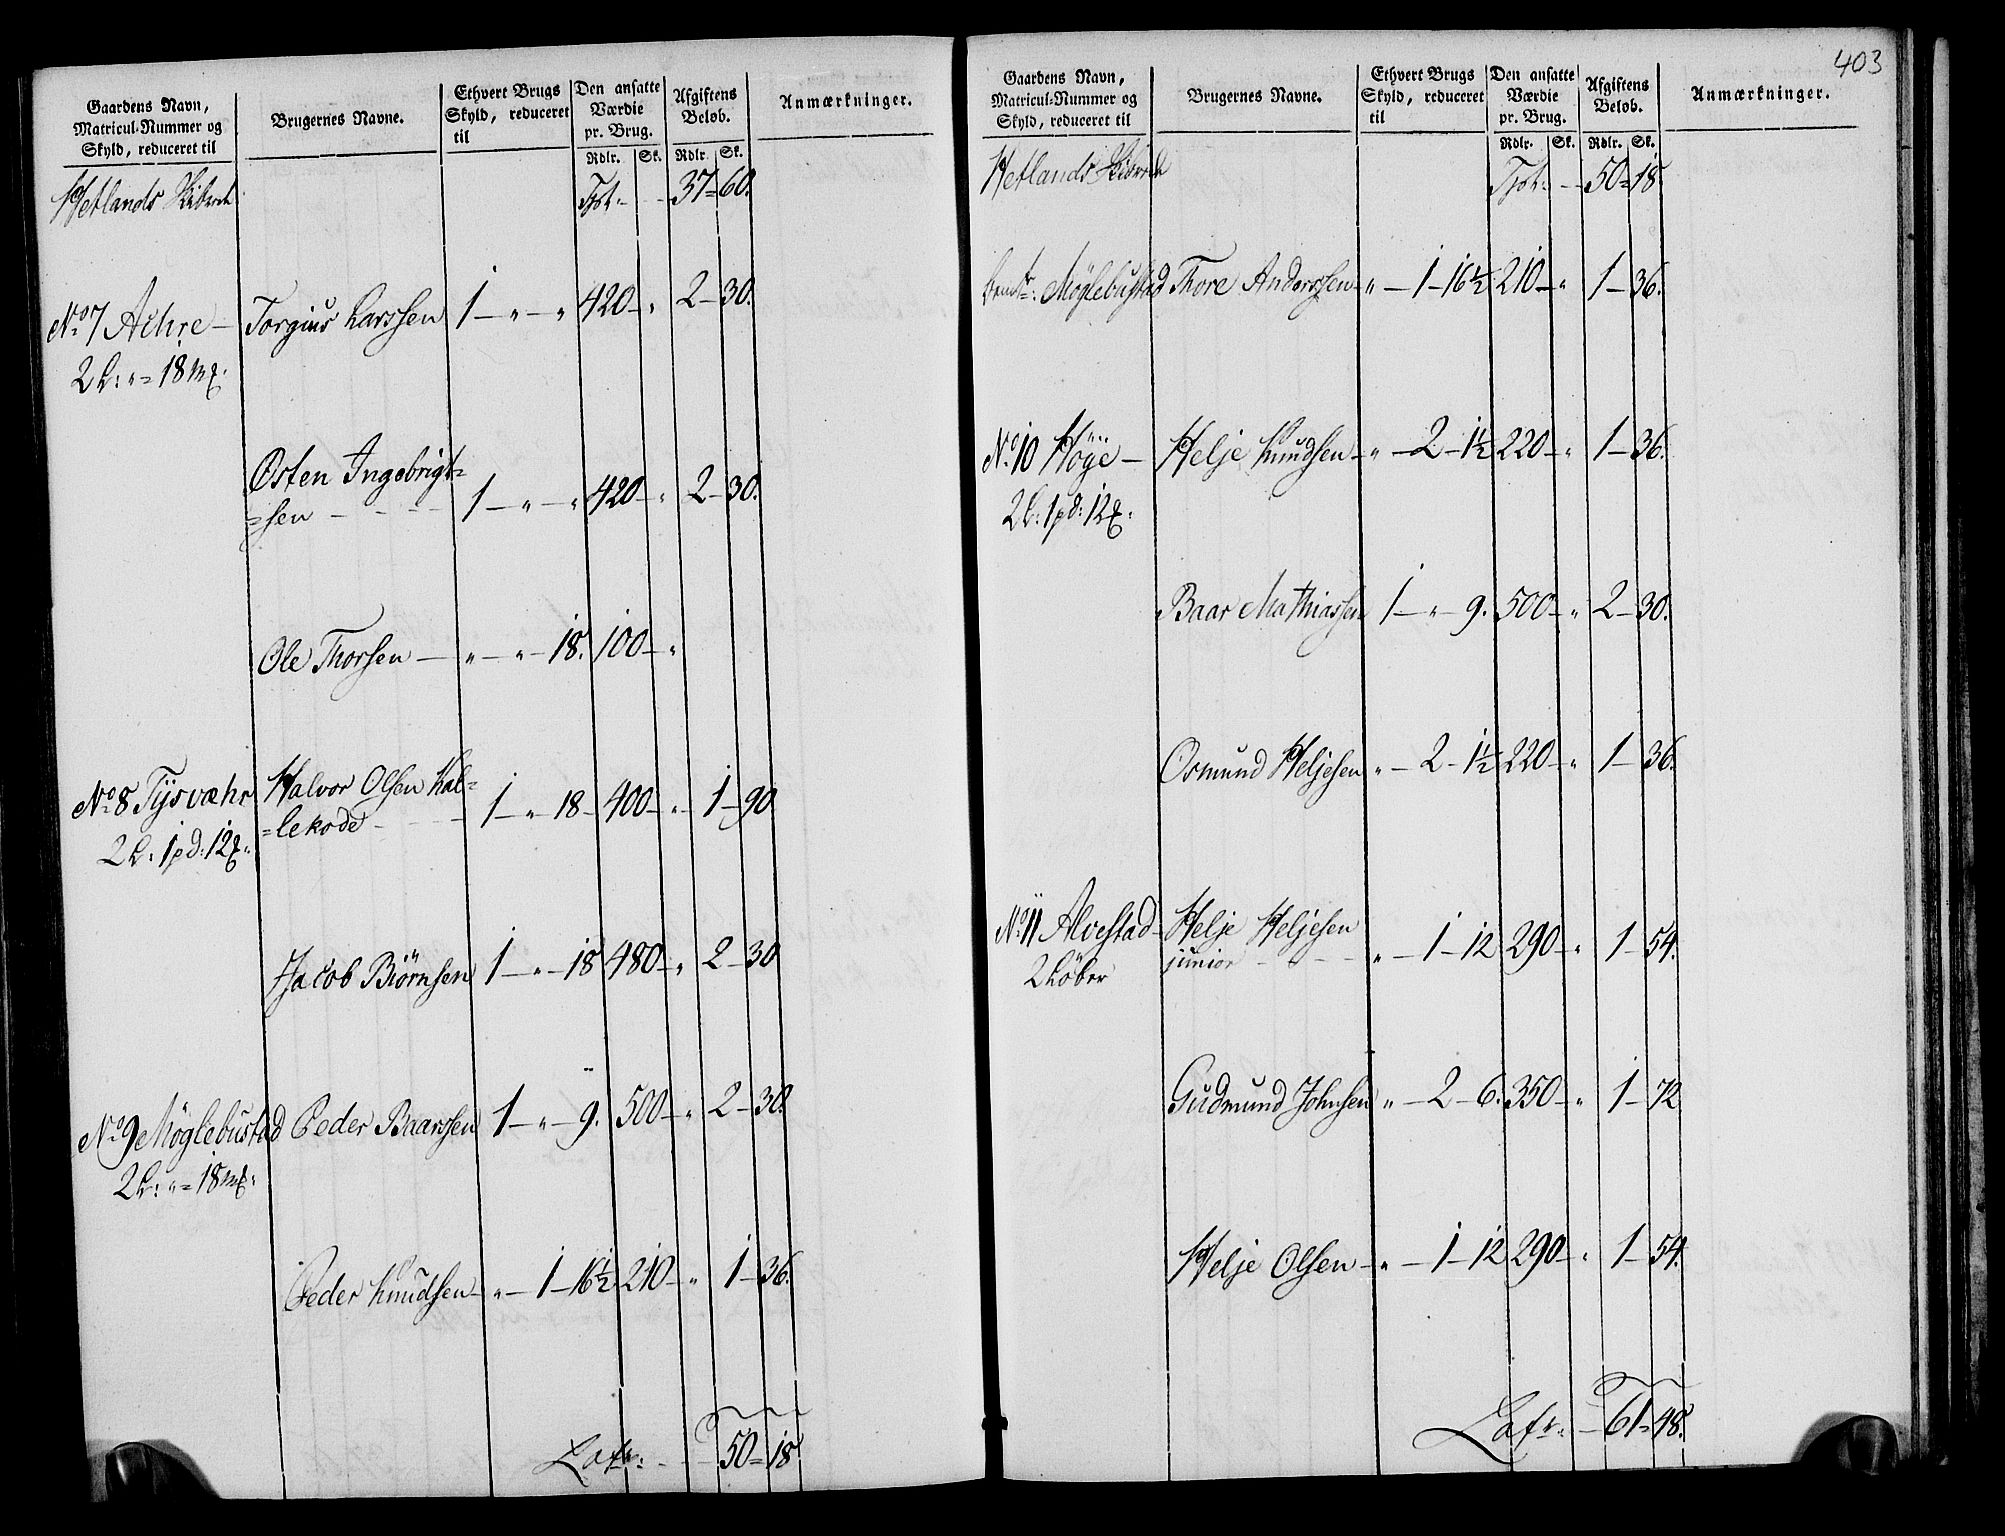 Gaardens Navn,
Matricul-Nummer og
Skyld, reduceret til
Brugernes Navne.
Ethvert Brugs
Skyld, reduceret
til
Den ansatte
Værdie
pr. Brug.
Afgiftens
Beløb.
Anmærkninger.
Rdlr. Sk. Rdlr. Sk.
Hetlands Skibrede Tpt. - - 37=60.
No. 7 Achre - Torgius Larssen 1 - " - " 420 - " 2 - 30.
2 L: " = 18 mk.
Osten Ingebrigt=
=sen - - - - 1 - " - " 420 - " 2 - 30.
Ole Thorsen - " - " - 18. 100 - "
No. 8 Tysvæhr Halvor Olsen Kal=
=lekode - - - 1 - " 18 - 400 - " - 1 - 90
2 L: 1 pd: 12 
Jacob Biörnsen 1 - " - 18 480 - " 2 - 30
No. 9 Möglebustad Peder Baarssen 1 - " - 9. 500 - " 2 - 30.
2 L: " = 18 mk.
Peder Knudsen - " - 1 - 16½ 210 - " 1 - 36.
Lats: - - 50 = 18
403
Gaardens Navn,
Matricul-Nummer og
Skyld, reduceret til
Brugernes Navne.
Ethvert Brugs
Skyld, reduceret
til
Den ansatte
Værdie
pr. Brug.
Afgiftens
Beløb.
Anmærkninger.
Rdlr. Sk. Rdlr. Sk.
Hetlands Skibrede Tpt: - - 50=18.
Möglebustad Thore Anderssen - " - 1 - 16½ 210 - " 1 - 36.
No. 10 Höÿe - Helje Knudsen - " - 2 - 1½ 220 - " 1 - 36.
2 L: 1 pd: 12 
Baar Mathiassen 1 - " - 9. 500 - " 2 - 30.
Osmund Heljesen " - 2 - 1½ 220 - " 1 - 36.
No. 11 Alvestad - Helje Heljesen
junior - - - " - 1 - 12 290 - " 1 - 54.
2 Löber
Gudmund Johnsen " - 2 - 6. 350 - " 1 - 72
Helje Olsen - " - 1 - 12 290 - " 1 - 54.
Lats: - 61=48.